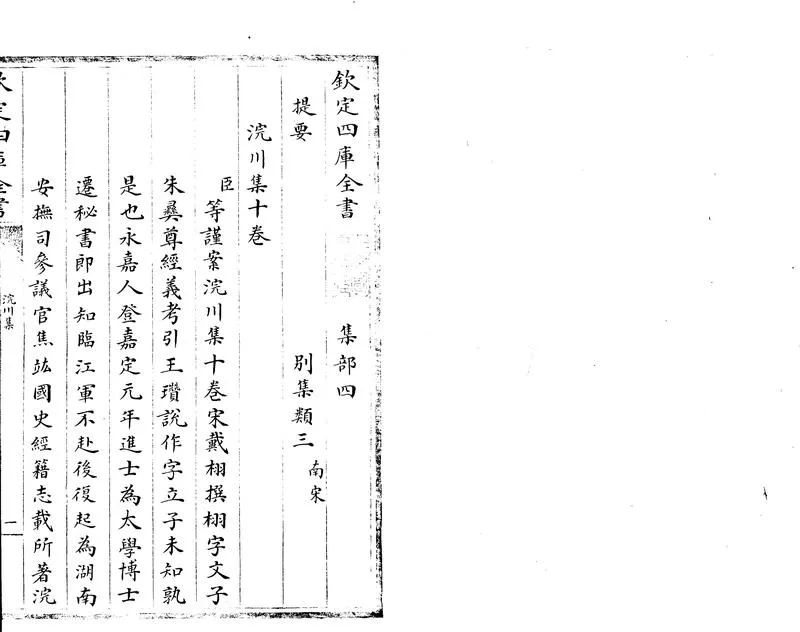 欽定四庫全書 集部四
提要 別集類三 南宋
浣川集十卷
臣等謹案浣川集十卷宋戴栩撰栩字文子
朱彝尊經義考引王瓚說作字立子未知孰
是也永嘉人登嘉定元年進士為太學博士
遷秘書郎出知臨江軍不赴後復起為湖南
安撫司參議官焦竑國史經籍志載所著浣
欽定四庫全書
浣川集
一